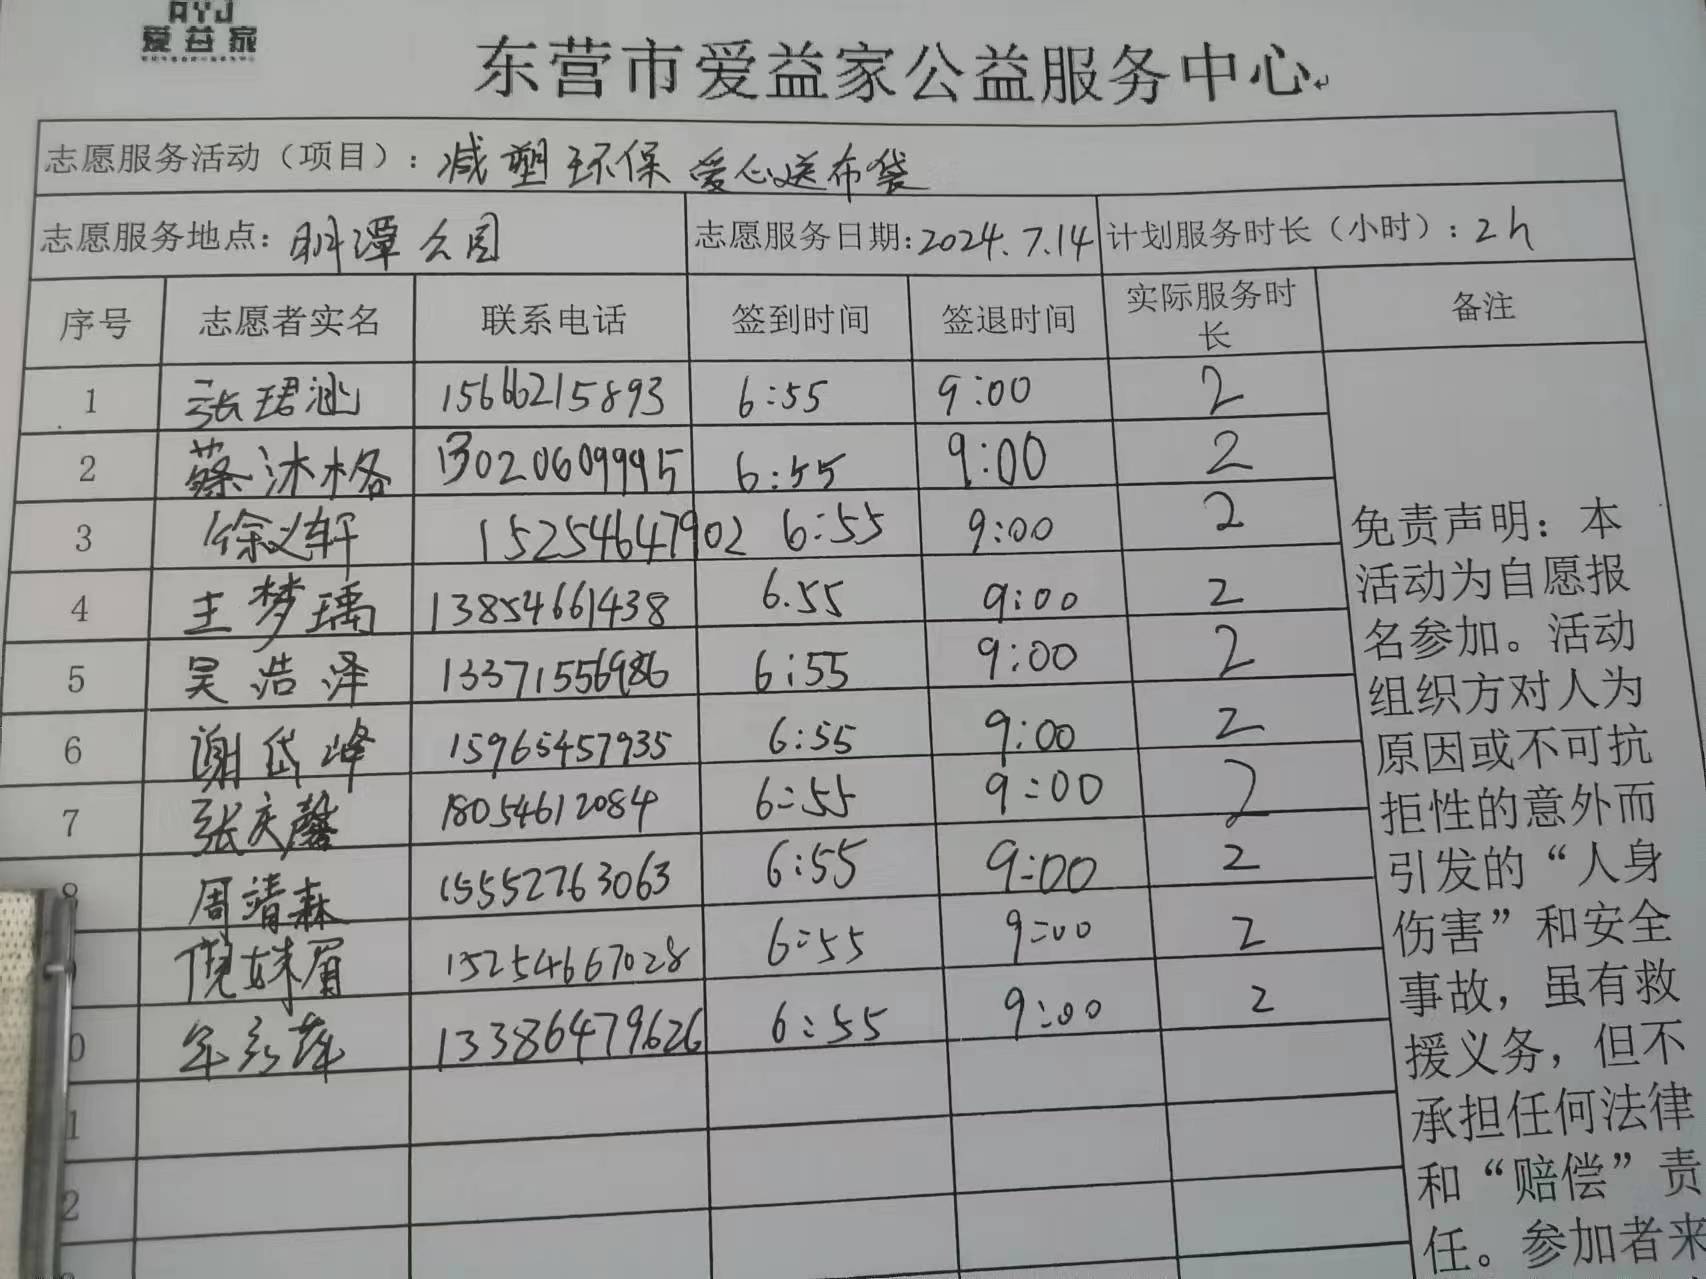 AYJ
爱益家
东营市爱益家公益服务中心
志愿服务活动（项目）：减塑环保 爱心送布袋
志愿服务地点：明潭公园 志愿服务日期：2024.7.14 计划服务时长（小时）：2h
序号 志愿者实名 联系电话 签到时间 签退时间 实际服务时长 备注
1 张珺涵 15666215893 6:55 9:00 2
2 蔡沐格 13020609995 6:55 9:00 2
3 徐义轩 15254647902 6:55 9:00 2
4 王梦瑀 13854661438 6.55 9:00 2
5 吴浩泽 13371556986 6:55 9:00 2
6 谢岱峰 15965457935 6:55 9:00 2
7 张庆馨 18054612084 6:55 9:00 2
8 周靖森 15552763063 6:55 9:00 2
9 倪姝眉 15254667028 6:55 9:00 2
0 13386479626 6:55 9:00 2
1
2
免责声明：本
活动为自愿报
名参加。活动
组织方对人为
原因或不可抗
拒性的意外而
引发的“人身
伤害”和安全
事故，虽有救
援义务，但不
承担任何法律
和“赔偿”责
任。参加者来